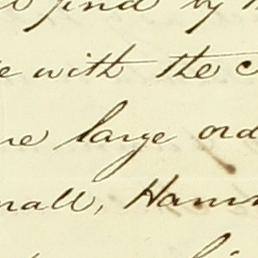 find by
with the
large ord
mall, Ham